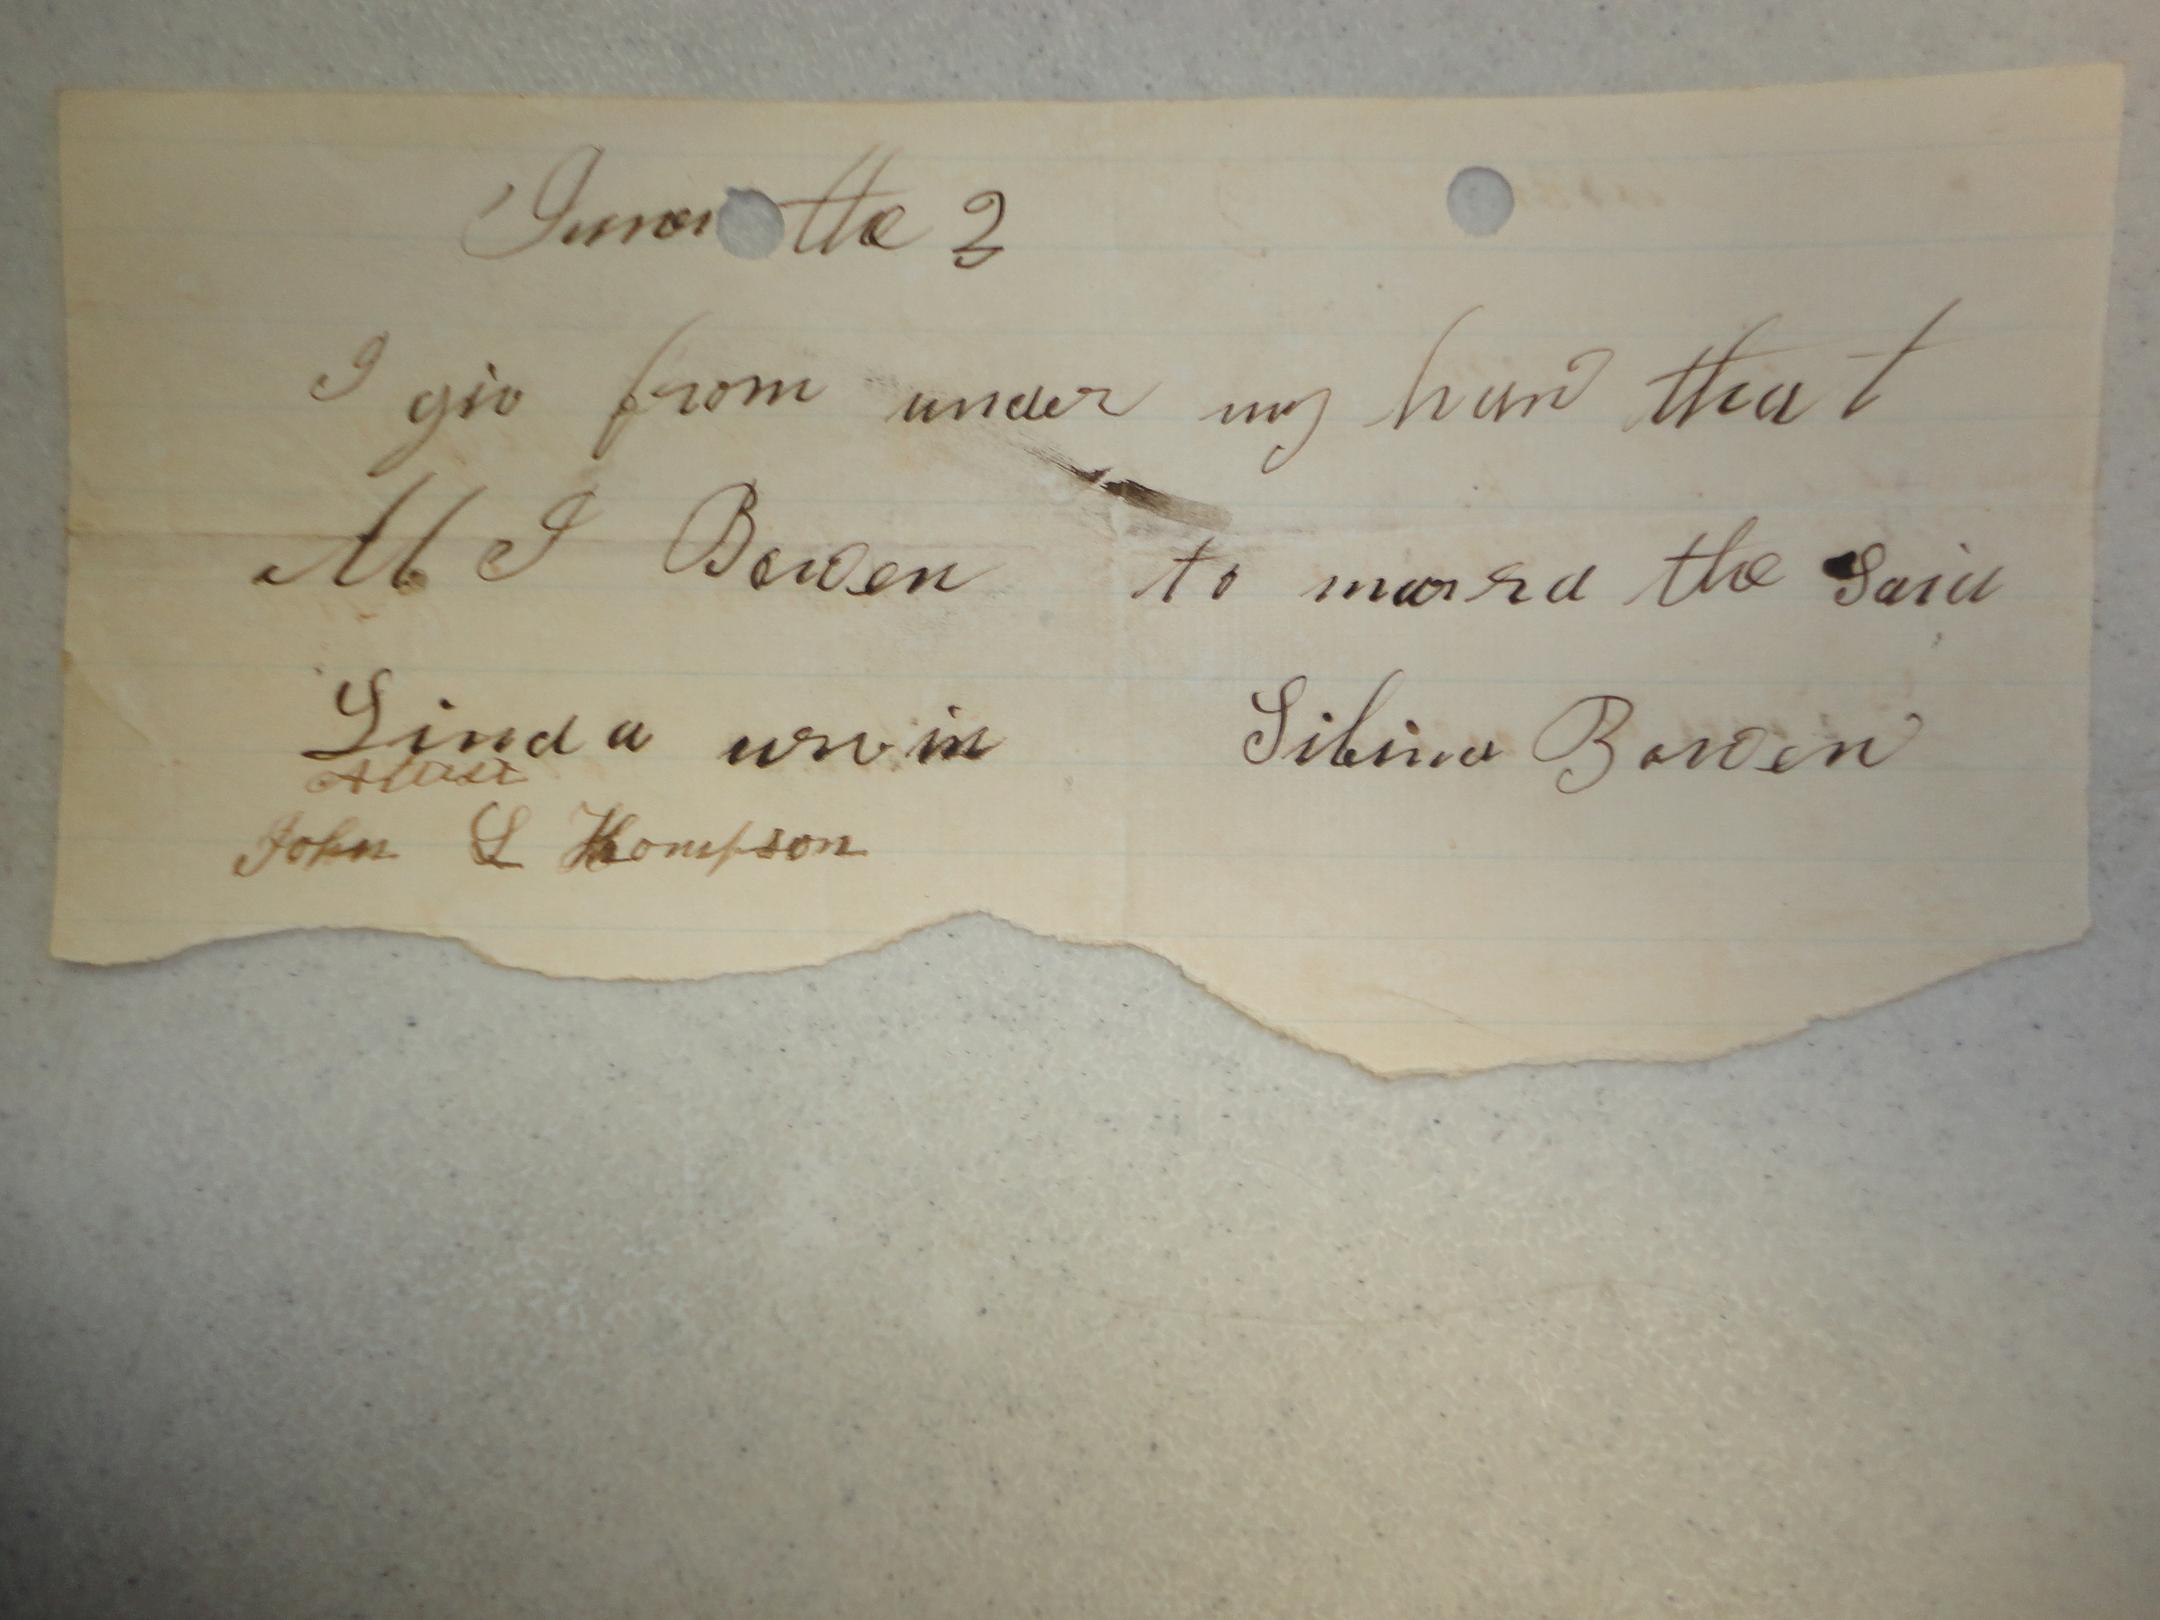 June the 2
I giv from under my hand that
M I Bowen to marrd the Said
Linda urvin Sibina Bowen
Attest
John L Thompson